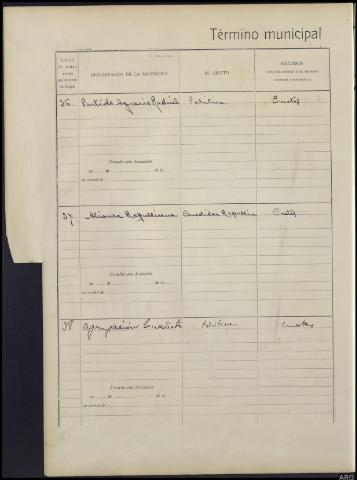 Término municipal
DENOMINACIÓN DE LA ASOCIACIÓN
SU OBJETO
RECURSOS
36 Partido Agrario Radical Política Cuotas
Disuelta esta Asociación
en de de 19
en virtud de
37 Alianza Republicana Cuotas
Disuelta esta Asociación
en de de 19
en virtud de
38 Agrupación Socialista Política Cuotas
Disuelta esta Asociación
en de de 19
en virtud de
ARG